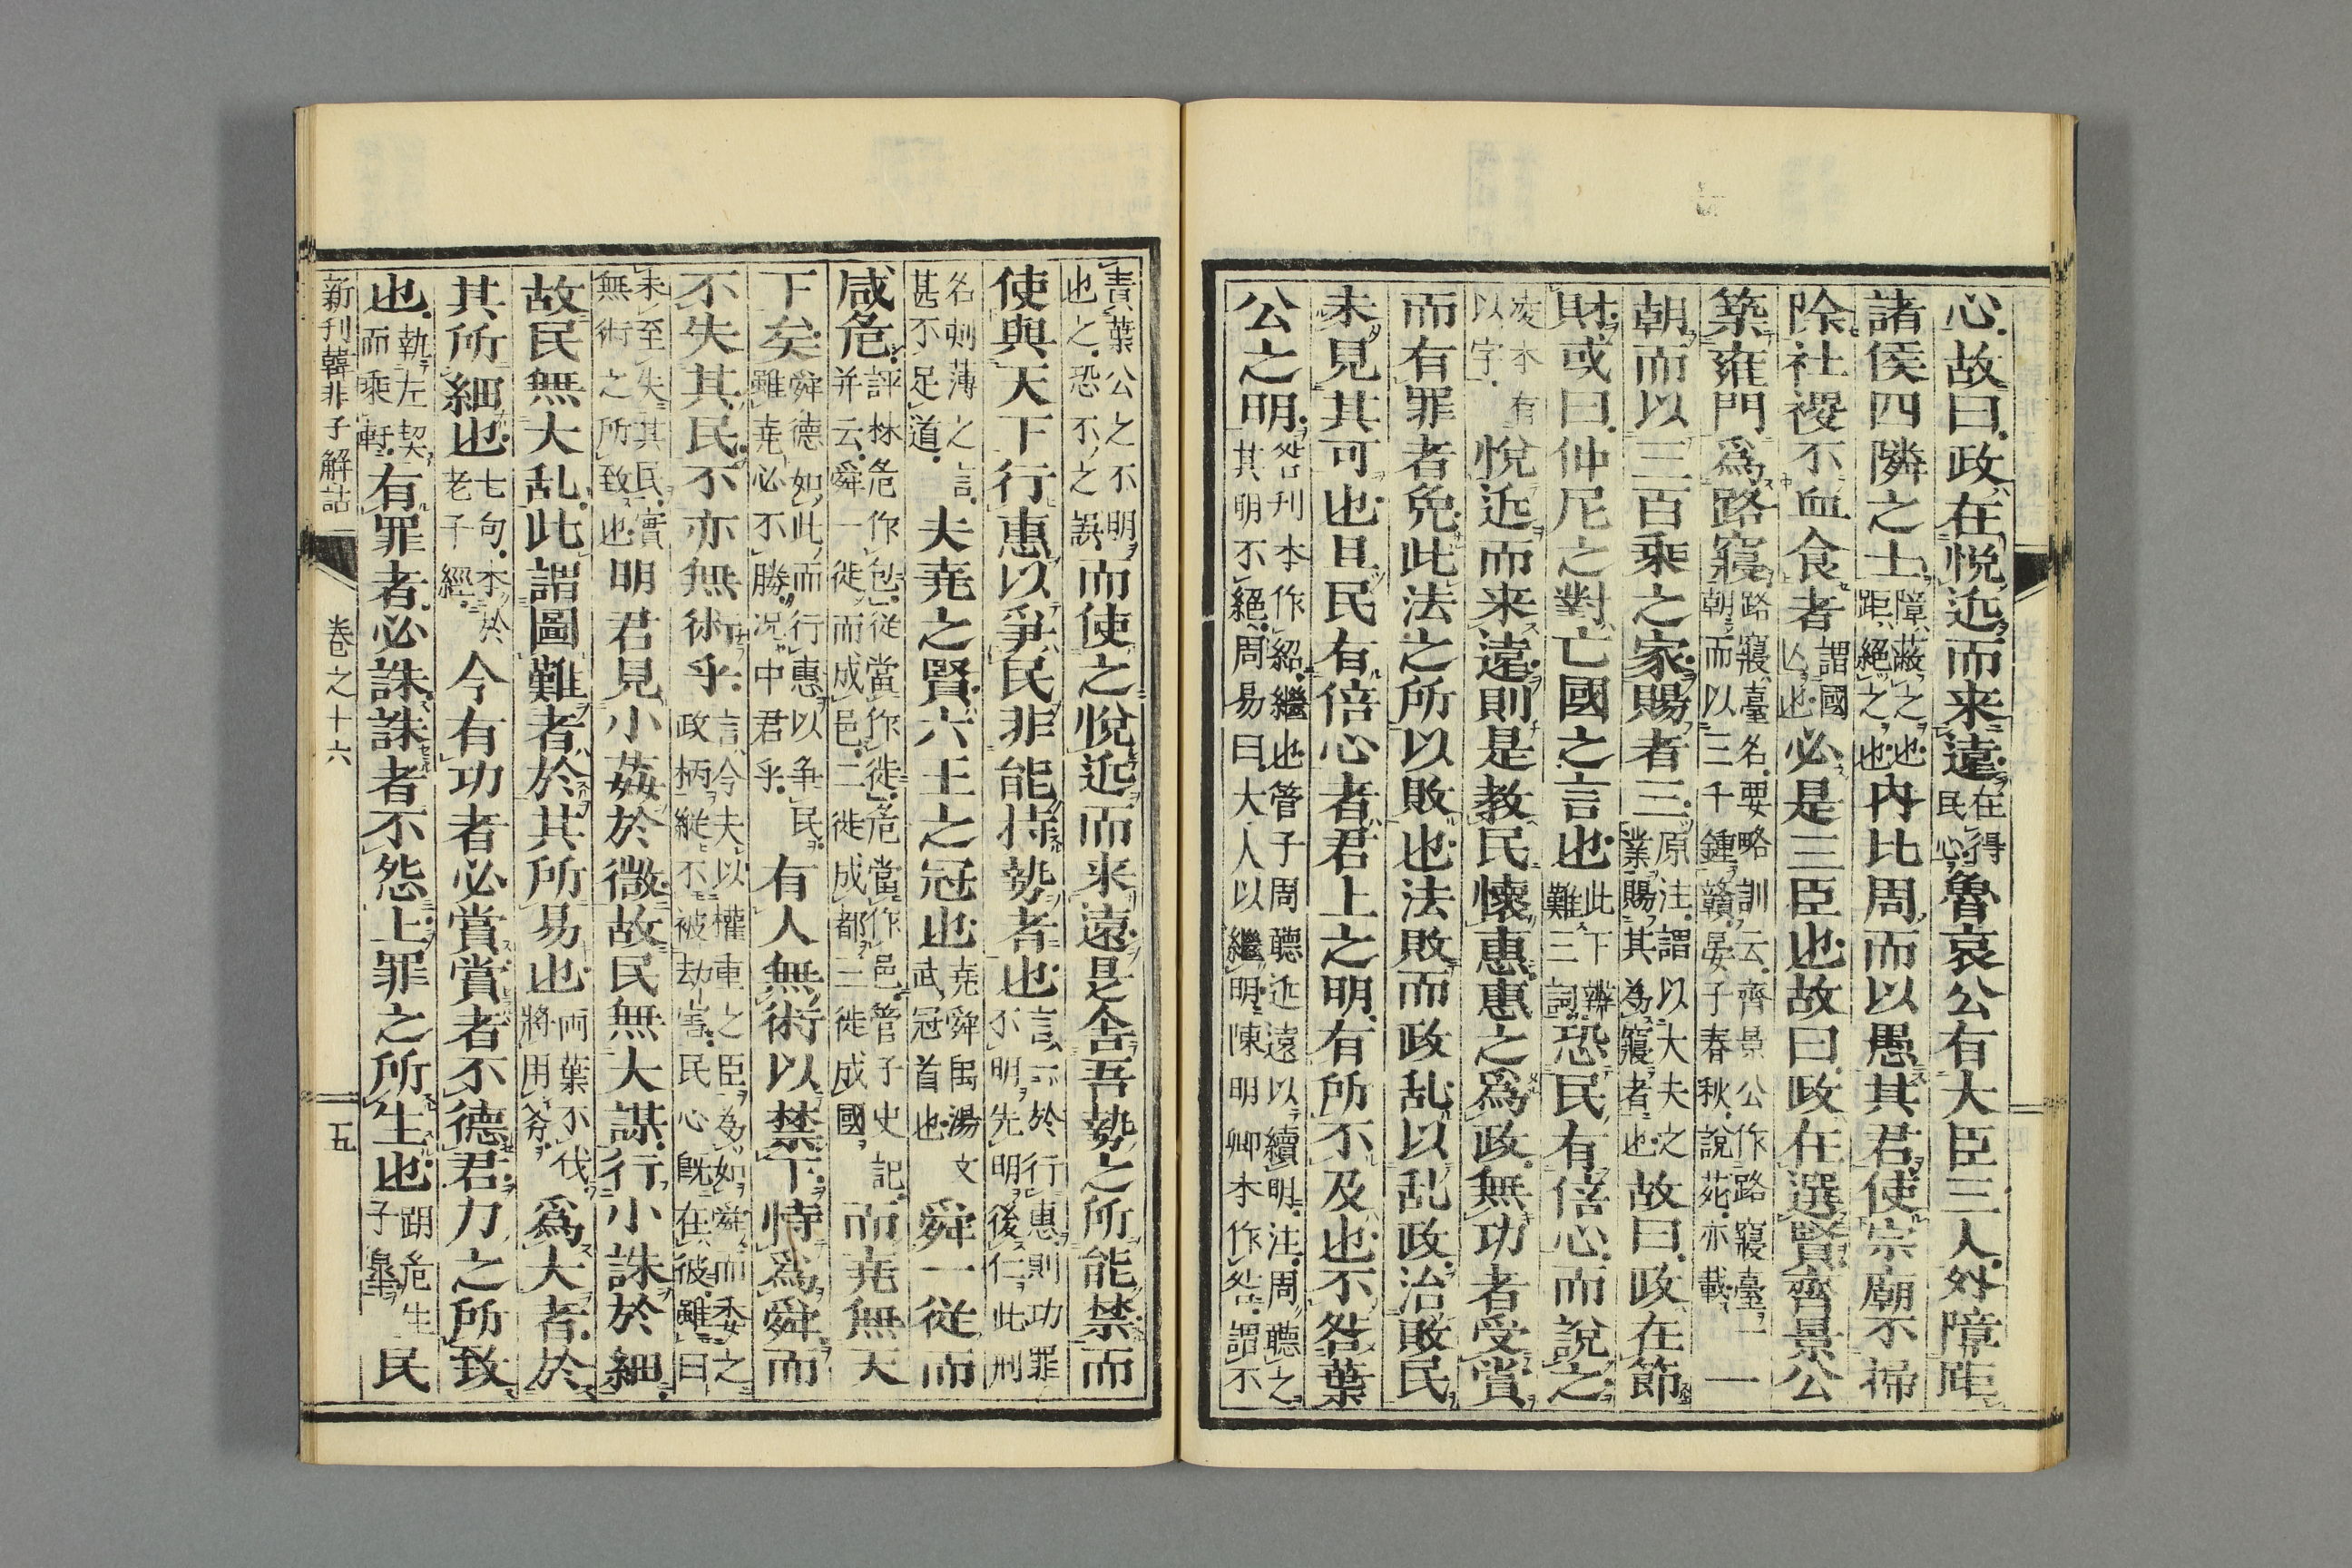 心故曰政在悦近而来遠在得民心魯哀公有大臣三人外障距
諸侯四隣之士障蔽之也距絕之也内比周而以愚其君使宗廟不掃
除社稷不血食者謂國亾也必是三臣也故曰政在選賢齊景公
築雍門爲路寢路寢臺名要略訓云齊景公作路寢臺一朝而以三千鍾贛晏子春秋說苑亦載一
朝而以三百乘之家賜者三原注謂以大夫之業賜其為寢者也故曰政在節
財或曰仲尼之對亡國之言也此下辨難三詞恐民有倍心而說之
凌本有以字悅近而来遠則是教民懷惠惠之爲政無功者受賞
而有罪者免此法之所以敗也法敗而政乱以乱政治敗民
未見其可也且民有倍心者君上之明有所不及也不咎葉
公之明咎刊本作紹繼也管子周聽近遠以續明注周聽之其明不絕周易曰大人以繼明陳明卿本作咎謂不
責葉公之不明而使之悅近而来遠是舍吾勢之所能禁而
也之恐不之誤
使與天下行惠以爭民非能持勢者也言下於行惠則功罪不明先明後仁此刑
名刺薄之言甚不足道夫尭之賢六王之冠也尭舜禹湯文武冠首也舜一従而
咸危評林危作包従當作徙危當作邑管子史記并云舜一徙而成邑二徙成都三徙成國而尭無天
下矣舜德如此而行惠以争民雖尭必不勝况中君乎有人無術以禁下恃爲舜而
不失其民不亦無術乎言今夫以權重之臣為如舜而委之政柄縱不被劫害民心旣在彼雖曰
未至失其民實無術之所致也明君見小姦於微故民無大謀行小誅於細
故民無大乱此謂圖難者於其所易也両葉不伐將用斧爲大者於
其所細也七句本於老子經今有功者必賞賞者不德君力之所致
也執左契而乘軒有罪者必誅誅者不怨上罪之所生也跀危生子皐民
新刊韓非子解詁 卷之十六 五